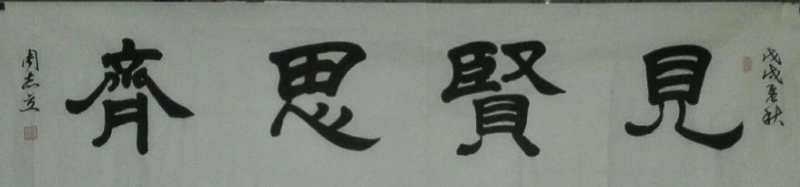 戊戌春秋
見賢思齊
周志立